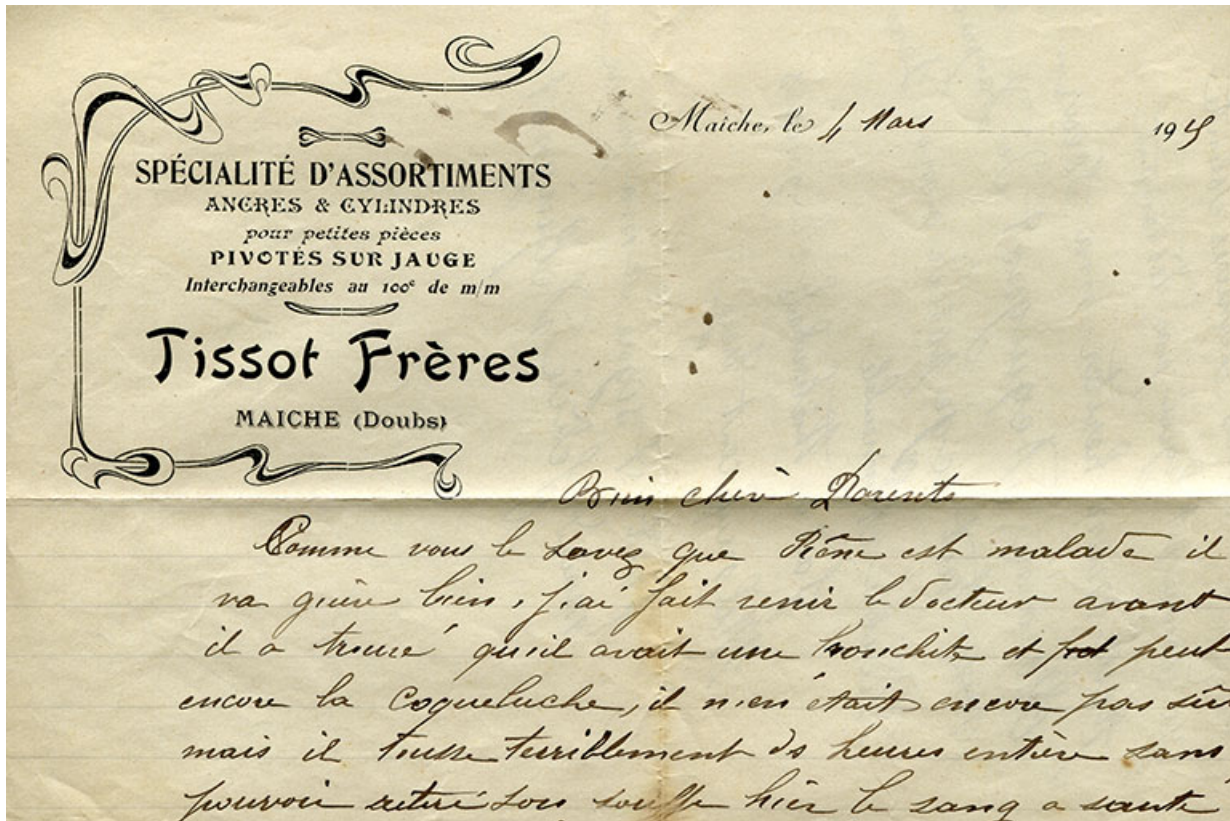 SPÉCIALITÉ D'ASSORTIMENTS
ANCRES & CYLINDRES
pour petites pièces
PIVOTÉS SUR JAUGE
Interchangeables au 100e de m/m
Tissot Frères
MAICHE (Doubs)
Maîche, le 4 Mars 191
chers Parents
Comme vous le savez que est malade il
va guère bien, j'ai fait venir le docteur avant
il a trouvé qu'il avait une bronchite et peut
encore la coqueluche, il n'en était encore pas sûr
mais il tousse terriblement ds heures entière sans
pouvoir retiré son souffle hier le sang a sauté